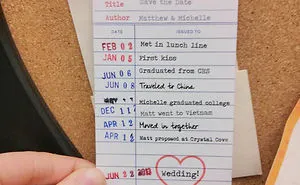 Title Save the Date
Author Matthew & Michelle
DATE ISSUED TO
FEB 02 Met in lunch line
JAN 05 First kiss
JUN 06 Graduated from GHS
JUN 08 Traveled to China
Michelle graduated college
DEC 11 Matt went to Vietnam
APR 12 Moved in together
APR 1 Matt proposed at Crystal Cove
JUN 22 Wedding!